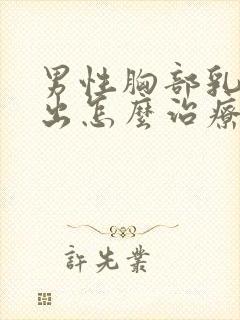 男性胸部乳
出怎麼治療
許先業